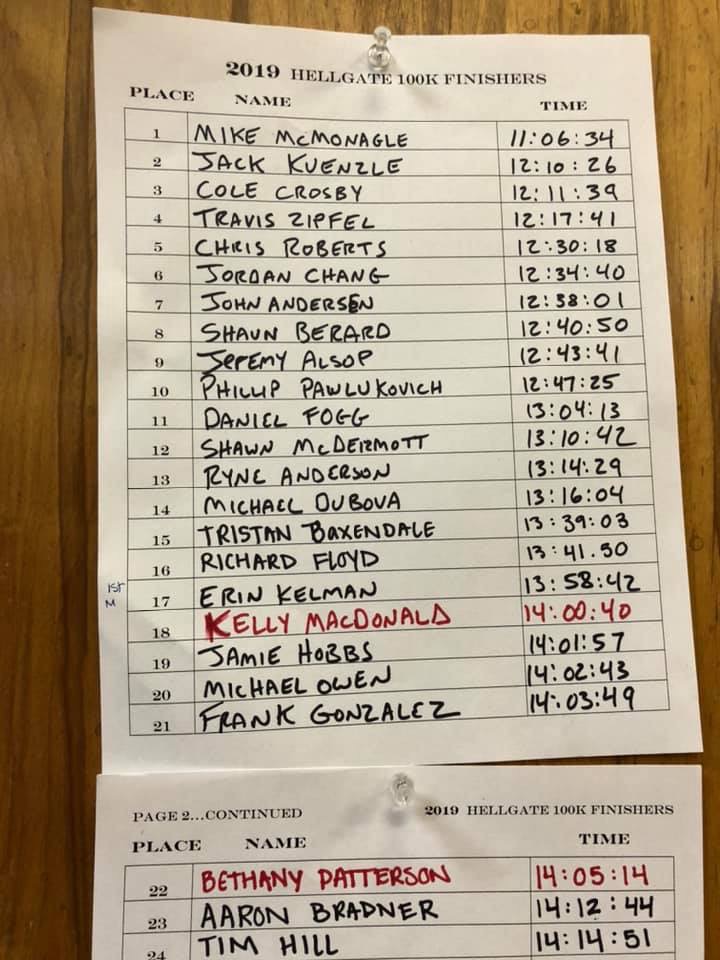 2019 HELLGATE 100K FINISHERS
PLACE NAME TIME
1 MIKE McMONAGLE 11:06:34
2 JACK KUENZLE 12:10:26
3 COLE CROSBY 12:11:39
4 TRAVIS ZIPFEL 12:17:41
5 CHRIS ROBERTS 12:30:18
6 JORDAN CHANG 12:34:40
7 JOHN ANDERSEN 12:38:01
8 SHAUN BERARD 12:40:50
9 JEREMY ALSOP 12:43:41
10 PHILLIP PAWLUKOVICH 12:47:25
11 DANIEL FOGG 13:04:13
12 SHAWN McDERMOTT 13:10:42
13 RYNE ANDERSON 13:14:29
14 MICHAEL DUBOVA 13:16:04
15 TRISTAN BAXENDALE 13:39:03
16 RICHARD FLOYD 13:41.50
1st M 17 ERIN KELMAN 13:58:42
18 KELLY MACDONALD 14:00:40
19 JAMIE HOBBS 14:01:57
20 MICHAEL OWEN 14:02:43
21 FRANK GONZALEZ 14:03:49
PAGE 2...CONTINUED 2019 HELLGATE 100K FINISHERS
PLACE NAME TIME
22 BETHANY PATTERSON 14:05:14
23 AARON BRADNER 14:12:44
24 TIM HILL 14:14:51